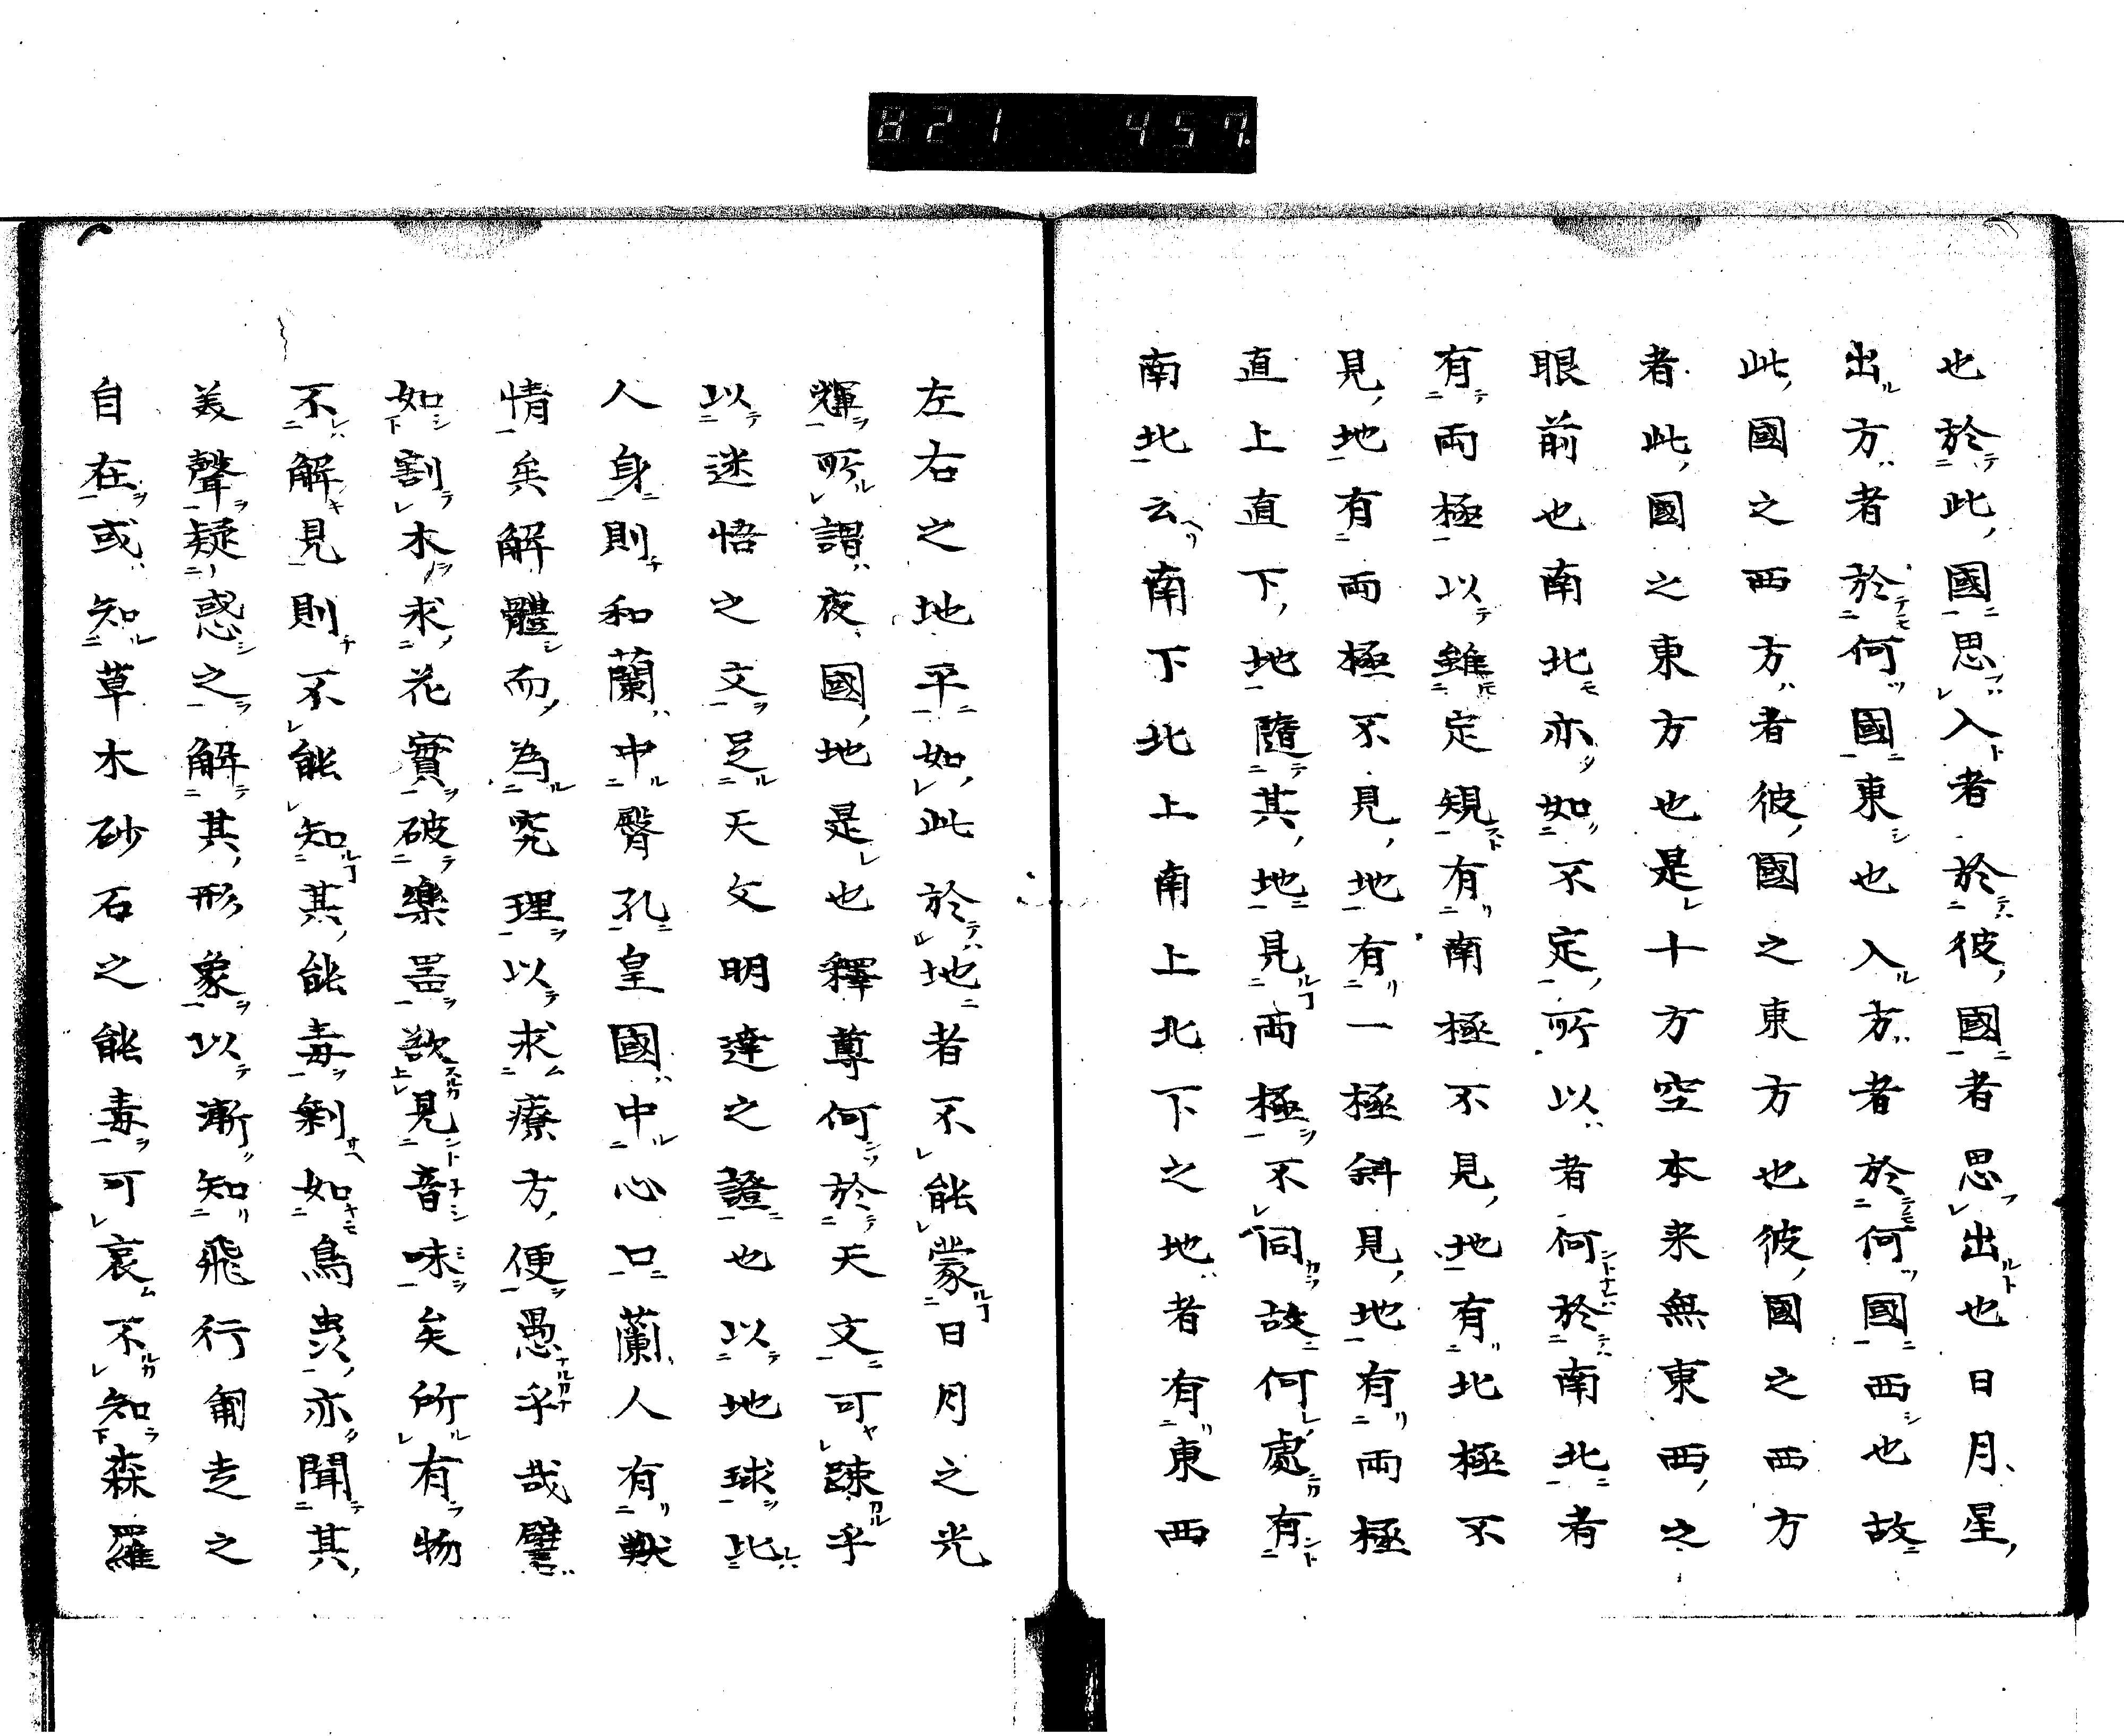 821 457
也於此國思入者於彼國者思出也日月星
出方者於何國東也入方者於何國西也故
此國之西方者彼國之東方也彼國之西方
者此國之東方也是十方空本来無東西之
眼前也南北亦如不定所以者何於南北者
有両極以雖定規有南極不見地有北極不
見地有両極不見地有一極斜見地有両極
直上直下地隨其地見両極不同故何處有
南北云南下北上南上北下之地者有東西
左右之地平如此於地者不能蒙日月之光
輝所謂夜國地是也釋尊何於天文可疎乎
以迷悟之文足天文明達之證也以地球比
人身則和蘭中臀孔皇國中心口蘭人有獣
情矣解體而為究理以求療方便愚乎哉譬
如割木求花實破樂噐欲見音味矣所有物
不解見則不能知其能毒剰如鳥虫亦聞其
美聲疑惑之解其形象以漸知飛行匍走之
自在或知草木砂石之能毒可哀不知森羅